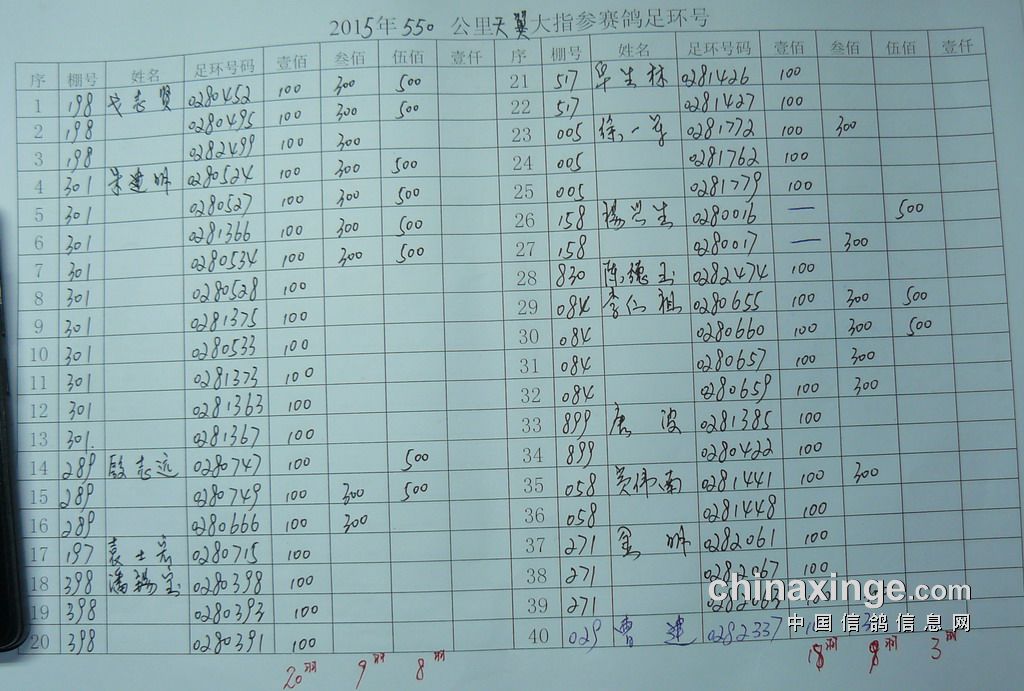 2015年550 公里天翼大指参赛鸽足环号
序 棚号 姓名 足环号码 壹佰 叁佰 伍佰 壹仟
1 198 0280452 100 300 500
2 198 0280495 100 300 500
3 198 0282499 100 300
4 301 0280524 100 300 500
5 301 0280527 100 300 500
6 301 0281366 100 300 500
7 301 0280534 100 300 500
8 301 0280528 100
9 301 0281375 100
10 301 0280533 100
11 301 0281373 100
12 301 0281363 100
13 301 0281367 100
14 289 殷志远 0280747 100 500
15 289 0280749 100 300 500
16 289 0280666 100 300
17 197 0280715 100
18 398 0280398 100
19 398 0280393 100
20 398 0280391 100
20羽 9羽 8羽
序 棚号 姓名 足环号码 壹佰 叁佰 伍佰 壹仟
21 517 华生林 0281426 100
22 517 0281427 100
23 005 0281772 100 300
24 005 0281762 100
25 005 0281779 100
26 158 杨兴生 0280016 — 500
27 158 0280017 — 300
28 830 陈德玉 0282474 100
29 084 李仁祖 0280655 100 300 500
30 084 0280660 100 300 500
31 084 0280657 100 300
32 084 0280659 100 300
33 899 唐波 0281385 100
34 899 0280422 100
35 058 吴伟南 0281441 100 300
36 058 0281448 100
37 271 金明 0282061 100
38 271 0282067 100
39 271 0282063
40 029 曹建 0282337
18羽 羽 3羽
chinaxinge.com
中国信鸽信息网